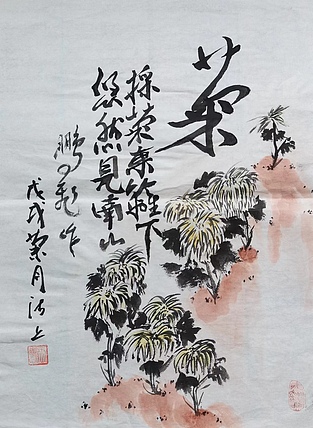 菊
採菊東籬下
悠然見南山
鵬 作
戊戌菊月沪上